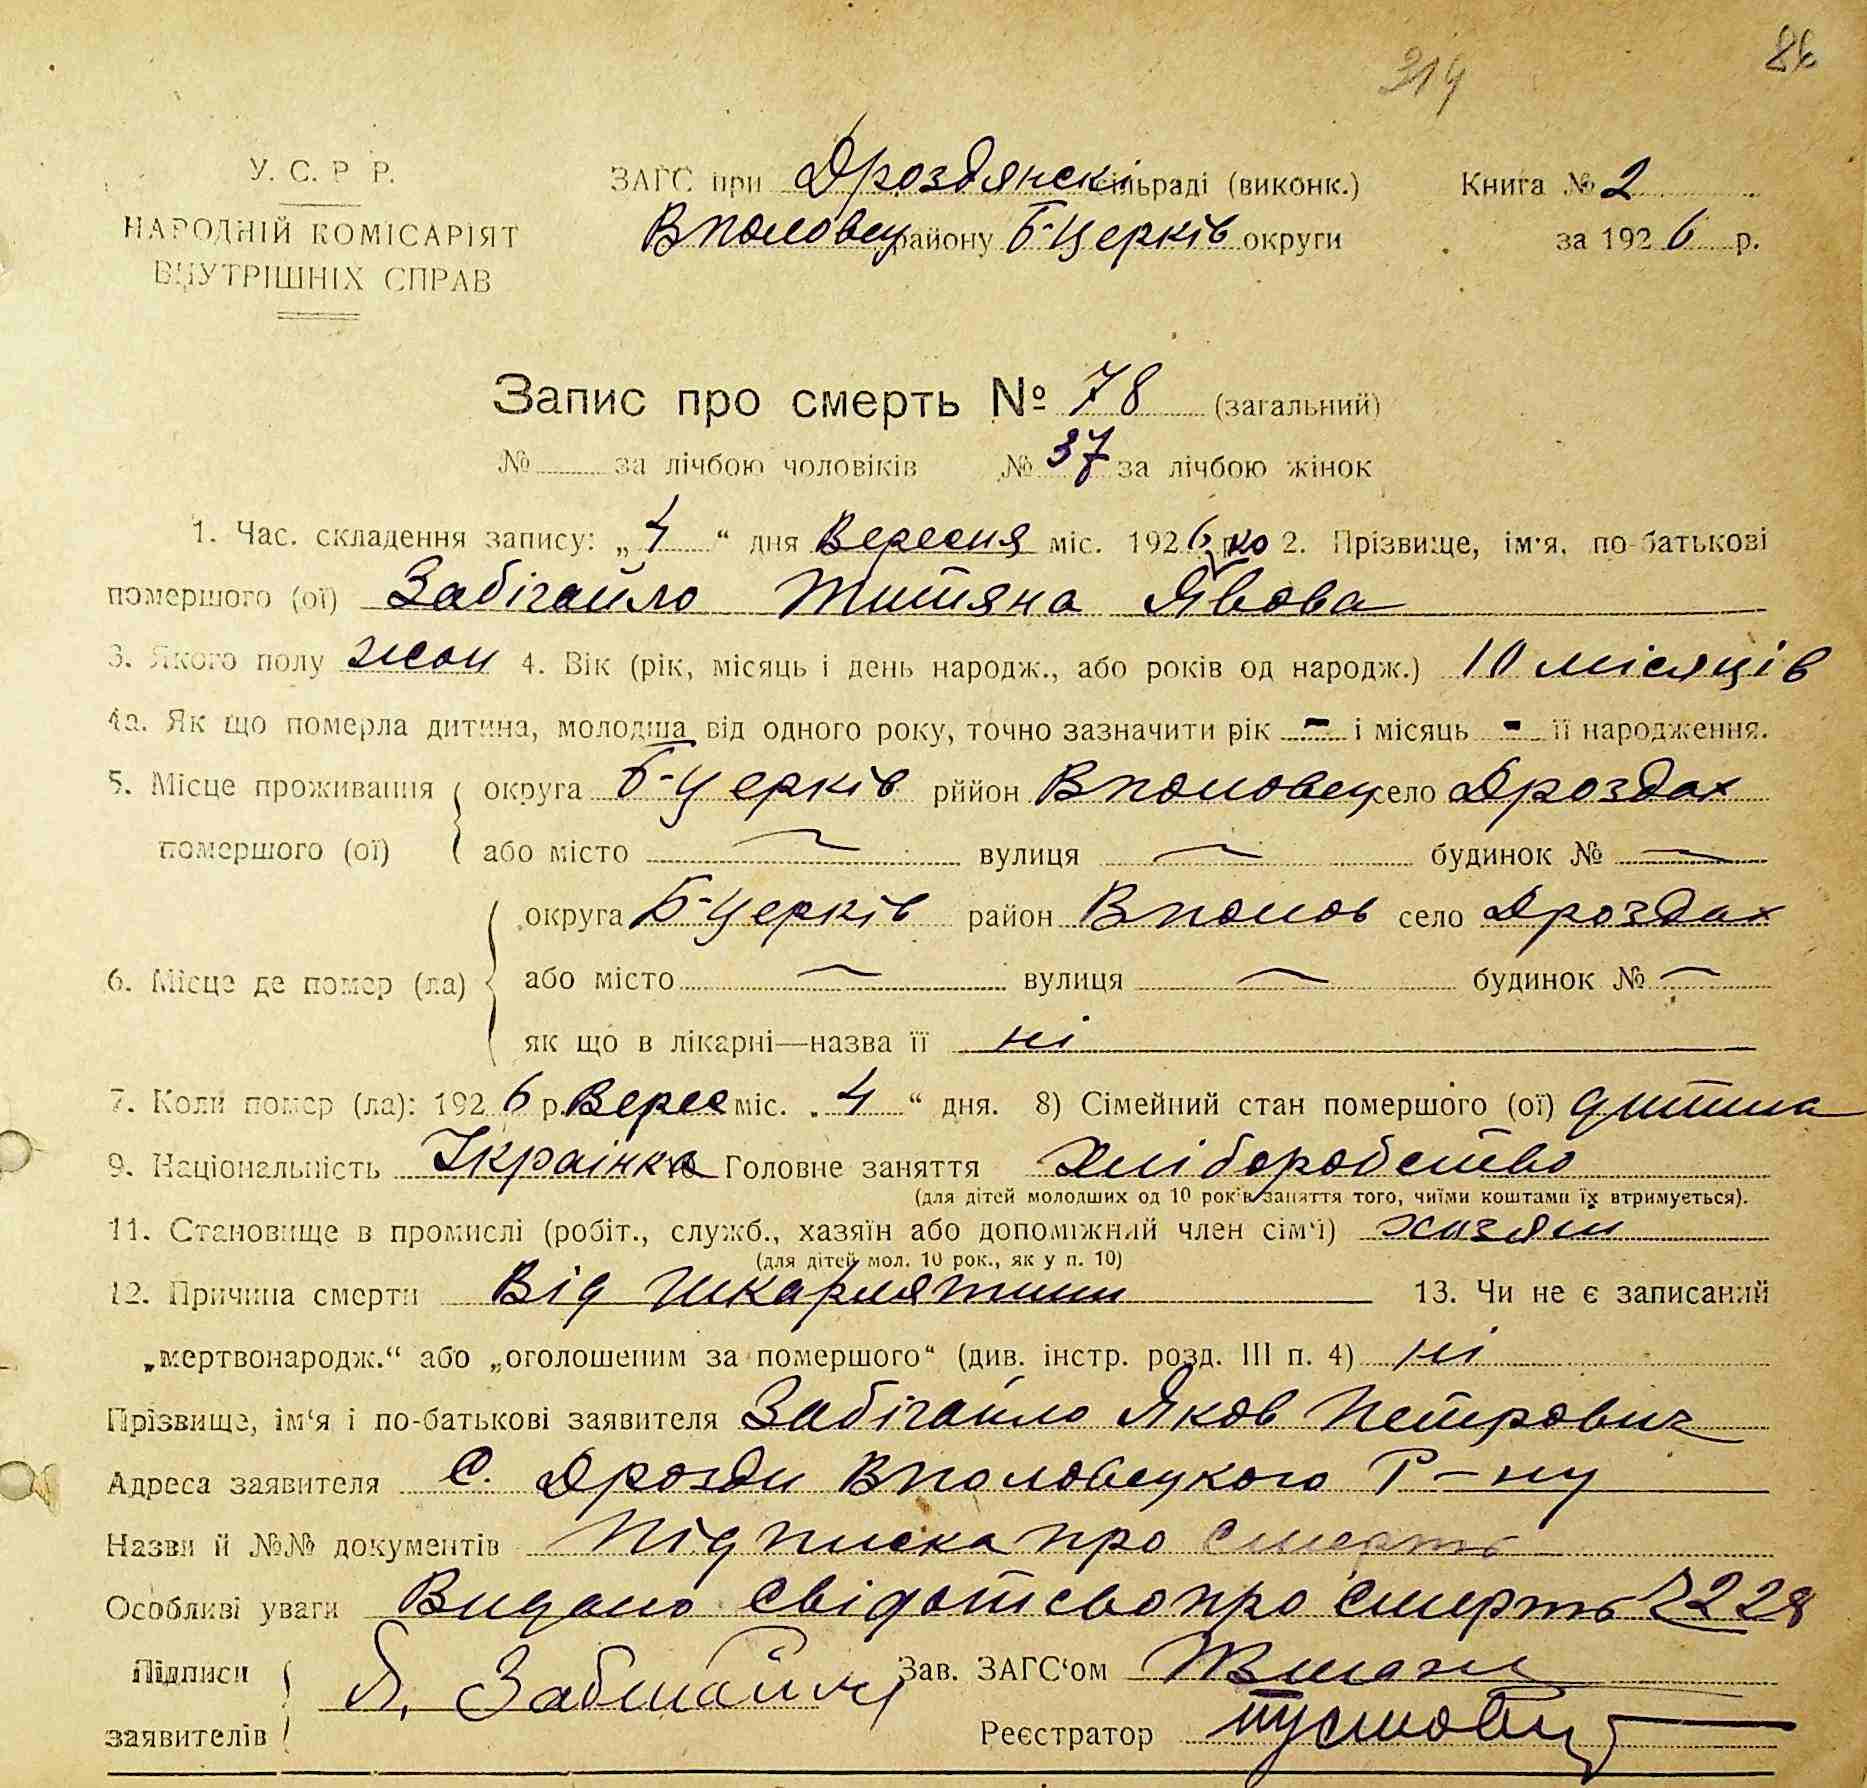 86
314
У. С. Р. Р.
НАРОДНІЙ КОМІСАРІЯТ
ВНУТРІШНІХ СПРАВ
ЗАГС при Дроздянскі сільраді (виконк.)
Вполовец району Б-Церків округи
Книга № 2
за 1926 р.
Запис про смерть № 78 (загальний)
№ за лічбою чоловіків № 37 за лічбою жінок
1. Час. складення запису: „4“ дня Вересня міс. 1926 р. 2. Прізвище, ім'я, по-батькові
ко
помершого (ої) Забігайло Титяна Явова
3. Якого полу жон 4. Вік (рік, місяць і день народж., або років од народж.) 10 місяців
4а. Як що померла дитина, молодша від одного року, точно зазначити рік - і місяць - її народження.
5. Місце проживання округа Б-Церків рййон Вполовец село Дроздах
помершого (ої) або місто — вулиця — будинок № —
округа Б-Церків район Вполов село Дроздах
6. Місце де помер (ла) або місто — вулиця — будинок № —
як що в лікарні—назва її ні
7. Коли помер (ла): 1926 р. Верес міс. „4“ дня. 8) Сімейний стан помершого (ої) дитина
9. Національність Українка 10 Головне заняття Хліборобство
(для дітей молодших од 10 років заняття того, чиїми коштами їх втримується).
11. Становище в промислі (робіт., служб., хазяїн або допоміжний член сім'ї) хазяїн
(для дітей мол. 10 рок., як у п. 10)
12. Причина смерти Від шкарлятини 13. Чи не є записаний
„мертвонародж.“ або „оголошеним за помершого“ (див. інстр. розд. III п. 4) ні
Прізвище, ім'я і по-батькові заявителя Забігайло Яков Петрович
Адреса заявителя С. Дрозди Вполовецкого Р-ну
Назви й №№ документів Підписка про смерть
Особливі уваги Видано свідотсво про смерть 2228
Підписи Зав. ЗАГС'ом
заявителів Я. Забигайло
Реєстратор Пустовіт